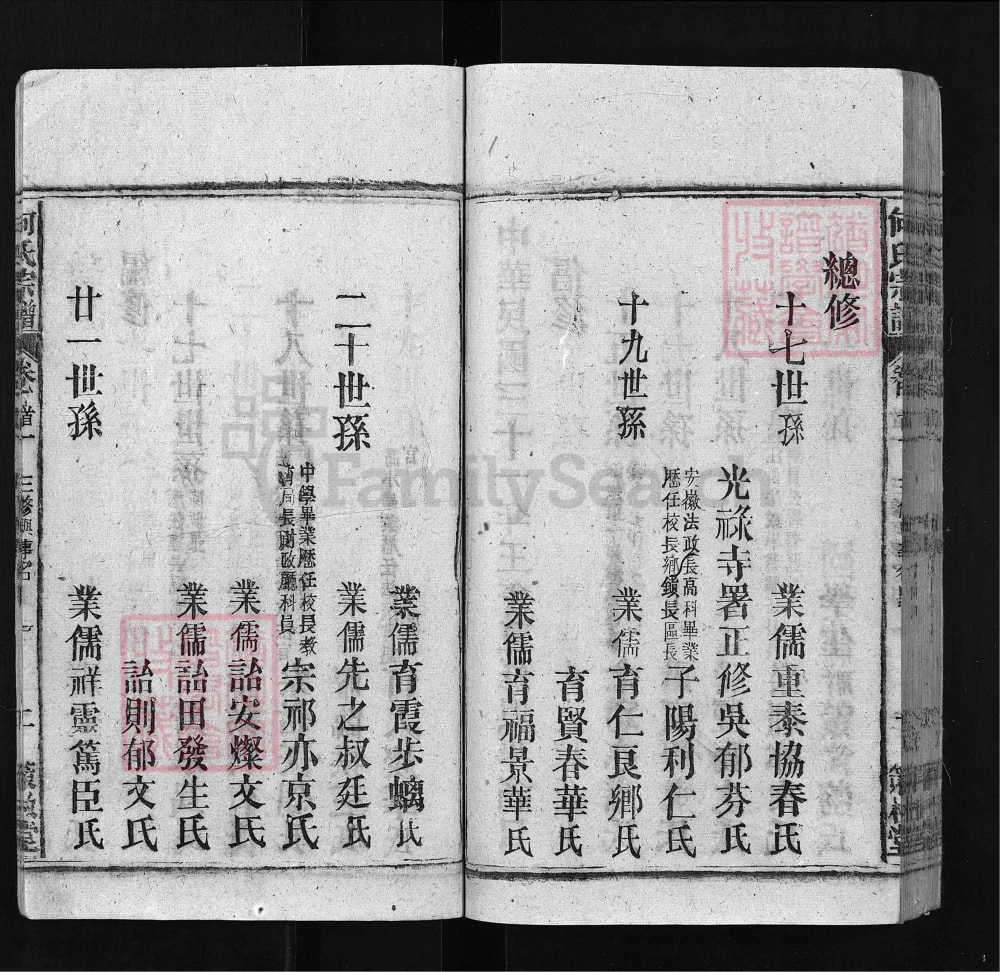 總修
十七世孫
業儒重泰協春氏
光祿寺署正修吳郁芬氏
安徽法政長高科畢業
歷任校長鄉鎮長區長
子陽利仁氏
十九世孫
業儒育仁良鄉氏
育賢春華氏
業儒育福景華氏
業儒育霞步蟾氏
二十世孫
業儒先之叔廷氏
中學畢業歷任校長教
育局長財政廳科員
宗祁亦京氏
業儒詒安燦文氏
業儒詒田發生氏
詒則郁文氏
廿一世孫
業儒祥靈篤臣氏
何氏宗譜
卷首
何氏宗譜
FamilySearch